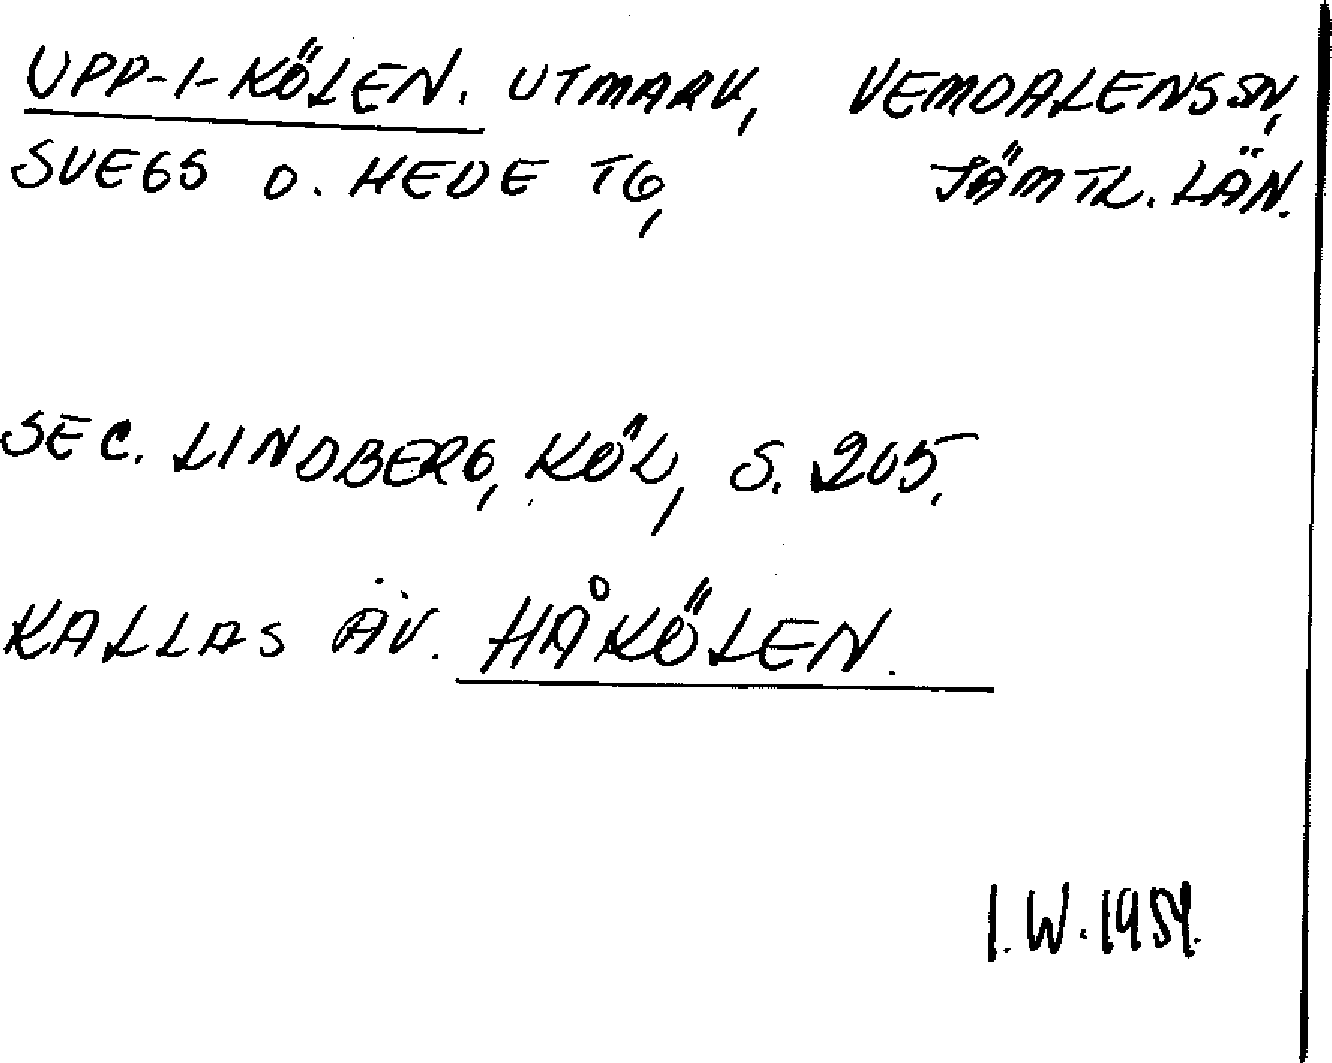 UPP-I-KÖLEN. UTMARK, VEMDALENS SN,
SVEGS O. HEDE TG, JÄMTL. LÄN.
SEC. LINDBERG, KÖL, S. 205.
KALLAS ÄV. HÅKÖLEN.
I. W. 1954.